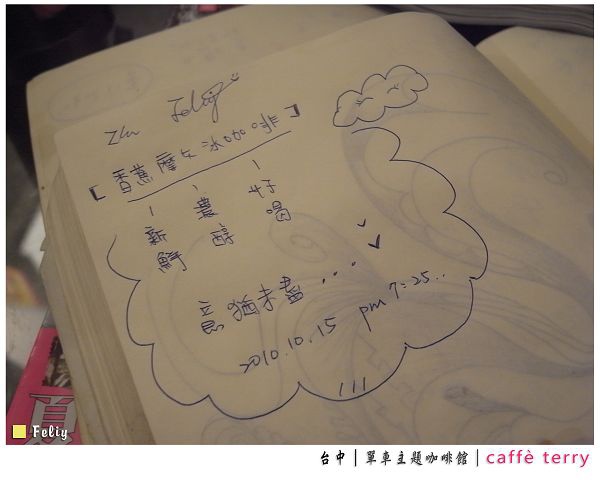 Feliy
【香蕉摩卡冰咖啡】
新鮮
濃醇
好喝
意猶未盡...
2010.10.15 pm 7:25..
Feliy
台中 | 單車主題咖啡館 | caffè terry